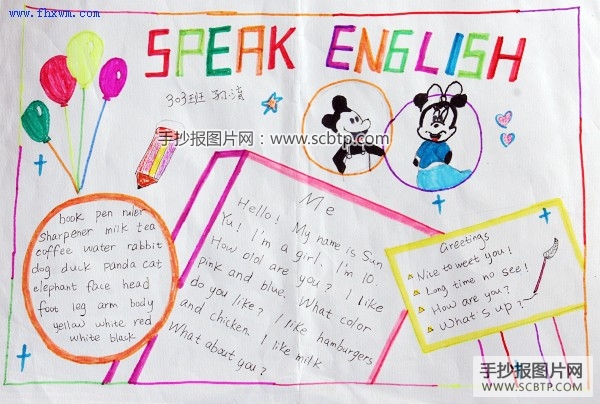 www.fhxwm.com
SPEAK ENGLISH
303班 孙
手抄报图片网:www.scbtp.com
book pen ruler
sharpener milk tea
cuffee water rabbit
dog duck panda cat
elephant face head
foot leg arm body
yellow white red
white black
Me
Hello! My name is Sun
Yu! I'm a girl. I'm 10.
How old are you? I like
pink and blue. What color
do you like? I like hamburgers
and chicken. I like milk
What about you?
Greetings
Nice to weet you!
Long time no see!
How are you?
What's up?
手抄报图片网
WWW.SCBTP.COM